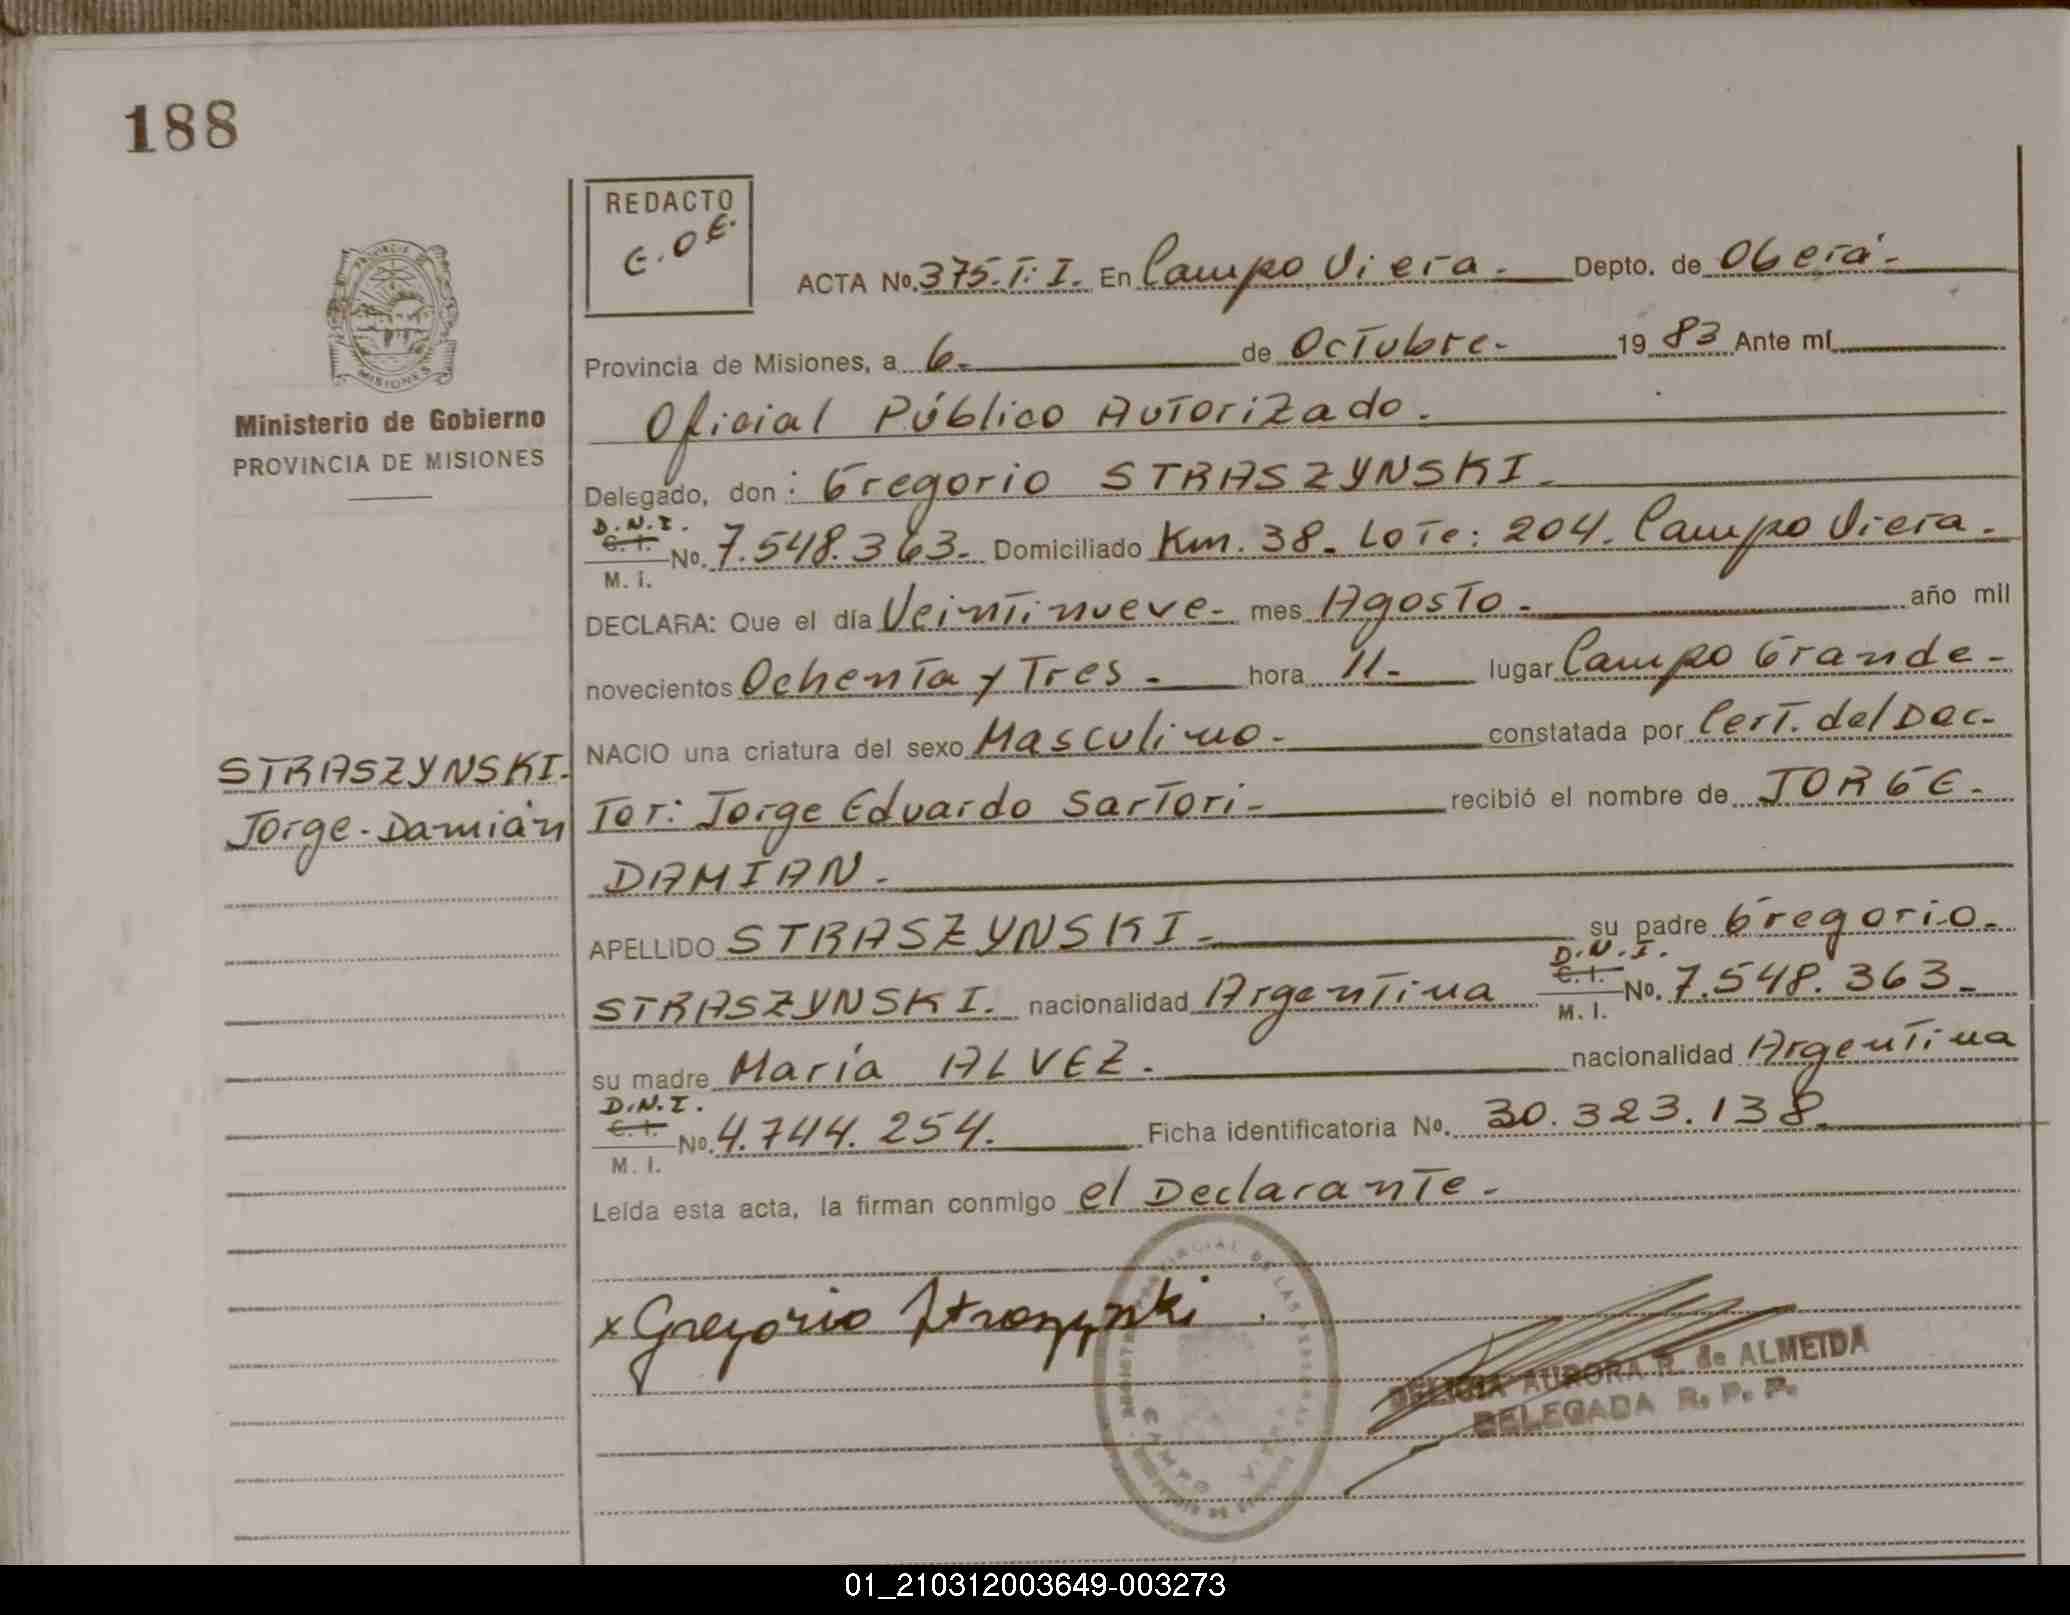 188
REDACTO
E.O.E.
ACTA No. 375. T: I. En Campo Viera. Depto. de Oberá.
Provincia de Misiones, a 6. de Octubre. 1983 Ante mí
Oficial Público Autorizado.
Delegado, don: Gregorio STRASZYNSKI.
D.N.I.
C. I.
M. I. No. 7.548.363. Domiciliado Km. 38. Lote: 204. Campo Viera.
DECLARA: Que el día Veintinueve. mes Agosto. año mil
novecientos Ochenta y Tres. hora 11. lugar Campo Grande.
NACIO una criatura del sexo Masculino. constatada por Cert. del Doc-
tor: Jorge Eduardo Sartori. recibió el nombre de JORGE.
DAMIAN.
APELLIDO STRASZYNSKI. su padre Gregorio.
D.N.I.
C. I.
STRASZYNSKI. nacionalidad Argentina M. I. No. 7.548.363.
su madre María ALVEZ. nacionalidad Argentina
D.N.I.
C. I.
M. I. No. 4.744.254. Ficha identificatoria No. 30.323.138.
Leída esta acta, la firman conmigo el Declarante.
x Gregorio Straszynski.
DELICIA AURORA R. de ALMEIDA
DELEGADA R. P. P.
PROVINCIAL DE LAS PERSONAS
CAMPO VIERA
PROVINCIA DE
MISIONES
Ministerio de Gobierno
PROVINCIA DE MISIONES
STRASZYNSKI.
Jorge-Damián
01_210312003649-003273